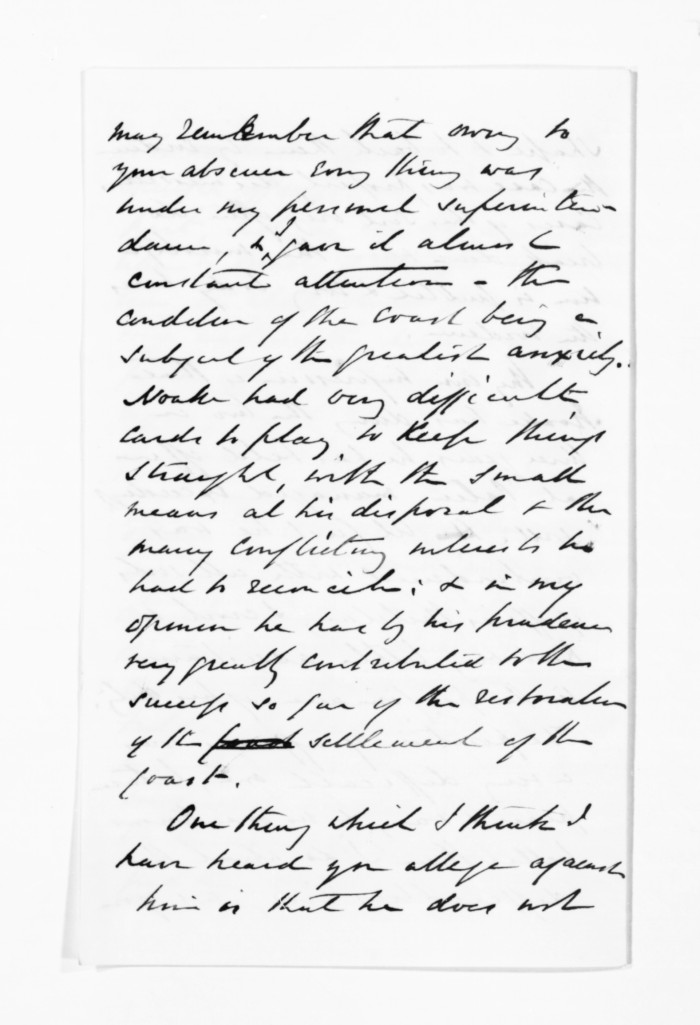 may remember that owing to
your absence every thing was
under my personal superinten-
dance, & I gave it almost
constant attention - the
condition of the Coast being a
subject of the greatest anxiety.
Noake had very difficult
cards to play to keep things
straight, with the small
means at his disposal & the
many conflicting interests he
had to reconcile; & in my
opinion he has by his prudence
very greatly contributed to the
success so far of the restoration
of the settlement of the
Coast.
One thing which I think I
have heard you allege against
him is that he does not